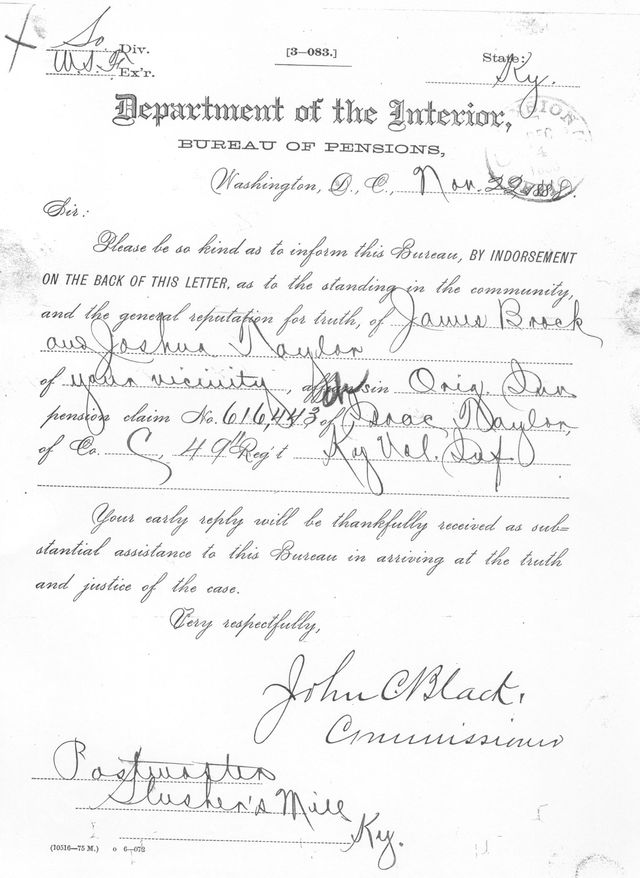 So. Div.
[3—083.]
State:
W.S.F. Ex'r.
Ky.
Department of the Interior,
BUREAU OF PENSIONS,
Washington, D. C., Nov. 22, 188
Sir:
Please be so kind as to inform this Bureau, BY INDORSEMENT
ON THE BACK OF THIS LETTER, as to the standing in the community,
and the general reputation for truth, of James Brock
and Joshua Naylor
of your vicinity, in Orig. Inv
pension claim No. 616,443 of Isaac Naylor,
of Co. C, 49" Reg't Ky Vol. Inf
Your early reply will be thankfully received as sub=
stantial assistance to this Bureau in arriving at the truth
and justice of the case.
Very respectfully,
John C. Black.
Commissioner
Postmaster
Slusher's Mill
Ky.
(10516—75 M.) o 6—072